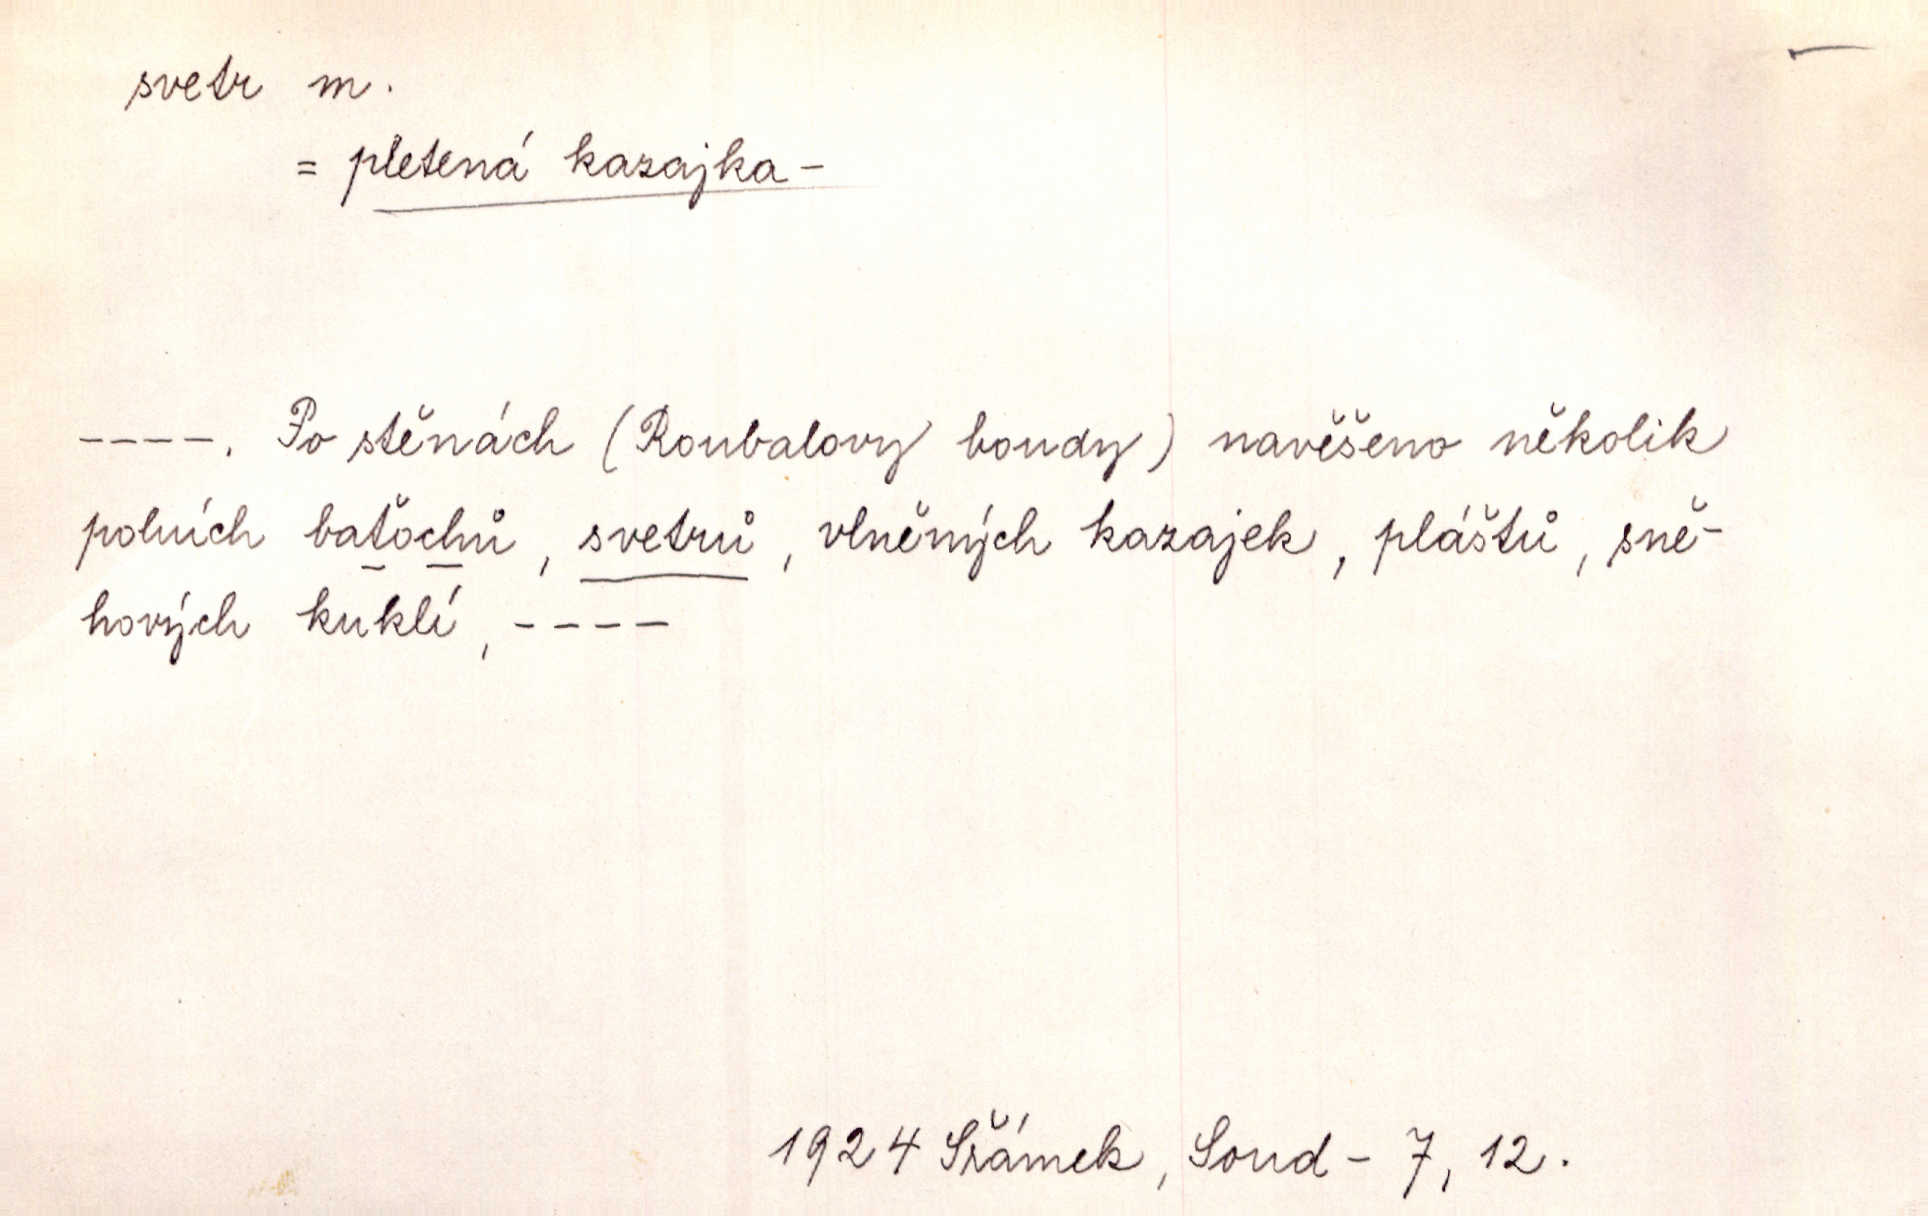 svetr m.
= pletená kazajka -
----. Po stěnách (Roubalovy boudy) navěšeno několik
polních baťochů, svetrů, vlněných kazajek, pláštů, sně-
hových kuklí, ----
1924 Šrámek, Soud - 7, 12.